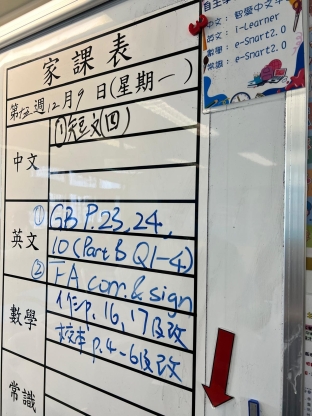 家課表
12月9日(星期一)
中文
①短文(四)
英文
① GB P.23,24,
10 (Part B Q1-4)
② FA corr. & sign
數學
p.16, 17及改
p.4-6及改
常識
自主學
中文: 智愛中文平
英文: i-Learner
數學: e-Smart2.0
常識: e-Smart2.0